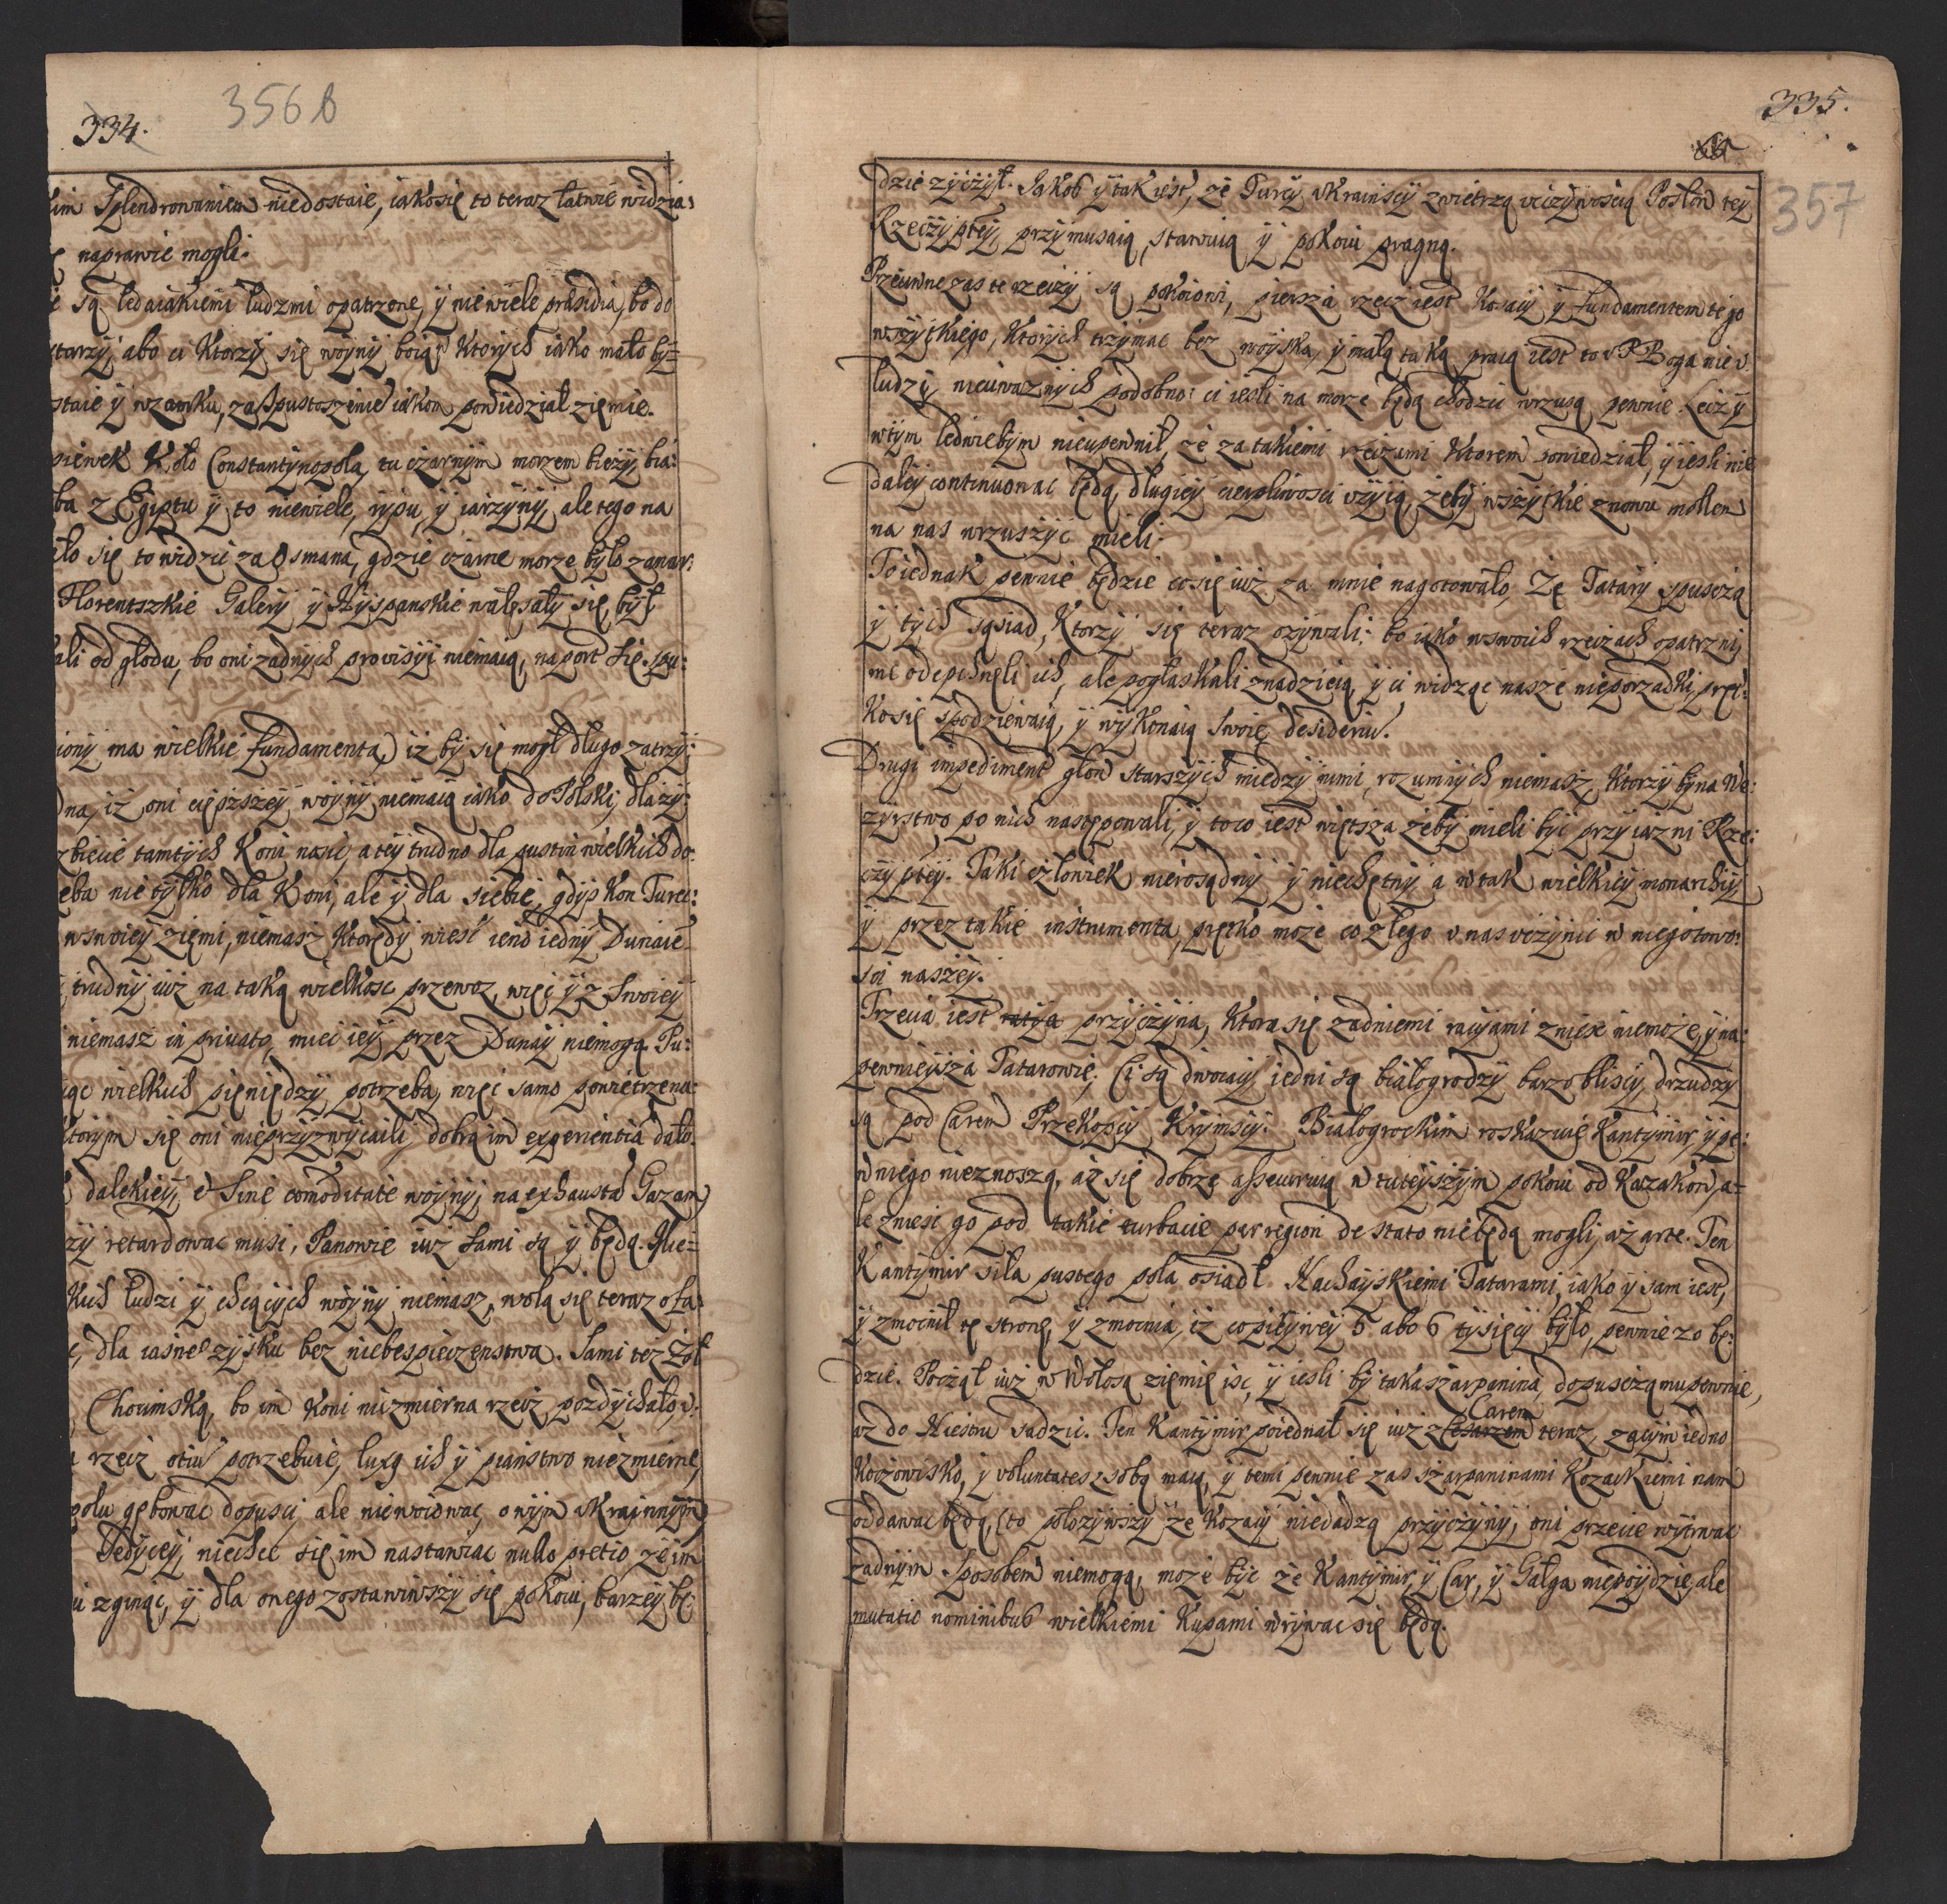 334.
356 b
kim Splendrowaniem niedostaie, iako się to teraz łatwie widzia:
naprawie mogli.
są ledaiakiemi ludzmi opatrzone, ÿ niewiele præsidia, bo do
abo ci Ktorzÿ się woÿnÿ boią, Ktorÿch iako mało bÿ=
staie ÿ w zamku, za spustoszenie iakom powiedział ziemie.
Koło Constantÿnopola, tu czarnÿm morzem bieżÿ bia:
ba z Egiptu ÿ to niewiele, rÿżu, ÿ iarzÿnÿ, ale tego na
ło się to widzić za Osmana, gdzie czarne morze bÿło zawar:
Florentszkie Galerÿ ÿ Hÿspanskie wałęsałÿ się, bÿł
ali od głodu, bo oni żadnÿch provisÿi niemaią, na port się spu:
ionÿ ma wielkie fundamenta) iż bÿ się mogł długo zatrzÿ:
dna, iż oni cięższeÿ woÿnÿ niemaią iako do Polski, dla zÿ:
zbicie tamtÿch Koni nasi, a teÿ trudno dla pustin wielkich do:
eba nie tÿlko dla Koni, ale ÿ dla siebie, gdÿż Kon Turec:
w swoieÿ ziemi, niemasz Ktorędÿ wieść ieno iednÿ Dunaie
trudnÿ iuż na taką wielkosc przewoz, więc ÿ z swoieÿ
niemasz in privato, miec ieÿ przez Dunaÿ niemogą. Pu:
ąc wielkich pieniędzÿ potrzeba, więc samo powietrze na:
ktorÿm się oni nieprzÿzwÿcaili, dobrą im experientia dało.
dalekieÿ, et sine comoditate woÿnÿ, na exhausta Gazam
zÿ retardowac musi, Panowie iuż sami są ÿ będą. Nie=
kich ludzi ÿ chcącÿch woÿnÿ niemasz, wolą się teraz ofa:
dla iasnego zÿsku bez niebespieczenstwa. Sami też Żoł
Chocimską, bo im Koni niezmierna rzecz pozdÿchało, v:
rzecz otiu potrzebuie, luxą ich ÿ pianstwo niezmierne,
polu gębować dopuści, ale niewoiować, o nÿm Vkrainnÿm
Dedÿceÿ, niechcć się im nastawiac nullo pretio, że im
zginąc, ÿ dla onego zostawiwszÿ się pokoiu, barzeÿ bę:
335.
357
dzie zÿczÿł. Jakoż ÿ tak iest, że Turcÿ Vkrainscÿ zwietrzą vczÿnością Posłow teÿ
Rzeczÿpteÿ, przÿmusaią, starouią ÿ pokoiu pragną.
Przeciwne zas te rzeczÿ są pokoiowi, piersza rzecz iest Kozacÿ ÿ fundamentem tego
wszÿstkiego, Ktorÿch trzÿmac bez woÿska, ÿ małą taką pracą iest to v P. Boga nie v
ludzÿ, nieuważnÿch podobno: ci iesli na morze będą chodzić wzruszą pewnie. Lecz ÿ
w tÿm ledwiebÿm nieupewnił, że za takiemi rzeczami Ktorem powiedział, ÿ iesli nie
daleÿ continuowac będą, długieÿ cierpliwosci vżÿią, żebÿ wszÿstkie znowu mołem
na nas wzruszÿć mieli.
To iednak pewnie będzie co się iuż za mnie nagotowało, Że Tatarÿ spuszczą
ÿ tÿch sąsiad, Ktorzÿ się teraz ozÿwali: bo iako w swoich rzeczach opatrznÿ
nie odepchnęli ich, ale pogłaskali znadzieią, ÿ ci widząc nasze nieporządki, pręt:
ko się spodziewaią, ÿ wÿkonaią swoie desideriu.
Drugi impediment głow starszÿch miedzÿ nimi, rozumnÿch niemasz, Ktorzÿ bÿ na We:
zÿrstwo po nich następowali, ÿ to co iest większa żebÿ mieli bÿć przÿiazni Rze:
czÿpteÿ. Taki człowiek nierosądnÿ ÿ niechętnÿ a w tak wielkieÿ monarchÿÿ
ÿ przez takie instrumenta, prętko może co złego v nas vczÿnić w niegotowo:
sci naszeÿ.
Trzecia iest przÿczÿna, Ktora się żadniemi racÿami zniesc niemoże, ÿ na:
pewnieÿsza Tatarowie. Ci są dwoiacÿ, iedni są białogrodzÿ barzo bliscÿ, drudzÿ
są pod Carem Przekopcÿ Krÿmscÿ. Białogrockim roskazuie Kantÿmir, ÿ pe:
wniego nieznoszą, aż się dobrze asseurują w tuteÿszÿm pokoiu od Kazakow, a=
le zniesc go pod takie turbacie per region de stato niebędą mogli, aż arte. Ten
Kantÿmir siła pustego pola osiadł Nachaÿskiemi Tatarami, iako ÿ sam iest,
ÿ zmocnił tę stronę, ÿ zmocnia, iż co pierweÿ 5 abo 6 tÿsięcÿ bÿło, pewnie 20 bę:
dzie. Począł iuż w Wołoską ziemię iść, ÿ iesli bÿ taka szarpanina, dopuszczą mu pewnie,
aż do Niestru sadzic. Ten Kantÿmir poiednał się iuż z Carem teraz, zacim iedno
Koczowisko, ÿ voluntates z sobą maią, ÿ temi pewnie zas szarpaninami Kozackiemi nam
oddawac będą, (to położÿwszÿ że Kozacÿ niedadzą przÿczÿnÿ, oni przecie wÿtrwac
żadnÿm sposobem niemogą, może bÿc że Kantÿmir, ÿ Car, ÿ Gałga niepoÿdzie, ale
mutatis nominibus wielkiemi Kupami wrÿwac się będą.